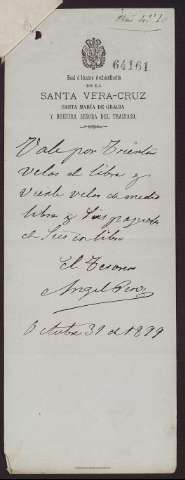 64161
Real é Ilustre Archicofradía
DE LA
SANTA VERA-CRUZ
SANTA MARÍA DE GRACIA
Y NUESTRA SEÑORA DEL TRASPASO
Vale por Treinta
velas de libra y
veinte velas de media
libra y tres paquetes
de libra
El Tesorero
Angel Perez
Octubre 31 de 1899